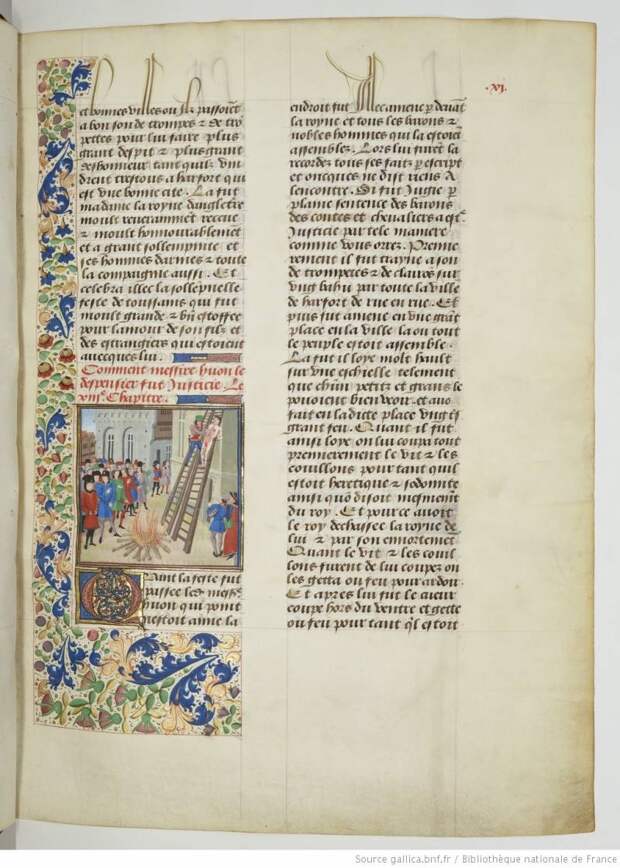 et bonnes villes ou ilz passoiẽt
a bon son de trompes ⁊ de trõ
pettes pour lui faire plus
grant despit ⁊ plus grant
deshonneur tant quilz vin
drent trestous a harfort qui
est vne bonne cite. La fut
madame la royne dangletrẽ
moult reueramment receue
⁊ moult honnourablement
et a grant sollempnite et
ses hommes darmes ⁊ toute
la compaignie aussi. Et
celebra illec la sollẽpnelle
feste de toussains qui fut
moult grande ⁊ biẽ estoffee
pour lamour de son filz et
des estrangiers qui estoient
auecques lui.
Comment messire huon le
despensier fut Justicie. Le
viij.e Chapitre.
Quant la feste fut
passee led.t messire
huon qui point
nestoit aime la
.xi.
endroit fut illec amene p deuãt
la royne et tous les barons ⁊
nobles hommes qui la estoiẽt
assemblez. Lors lui furẽt la
recordez tous ses faiz p escript
et oncques ne dist riens A
lencontre. Si fut Jugie p
plaine sentence des barons
des contes et cheualiers a est.
Justicie par tele maniere
comme vous orrez. Premie
rement il fut trayne a son
de trompetes ⁊ de clairos sur
vng bahu par toute la ville
de harfort de rue en rue. Et
puis fut amene en vne grãt
place en la ville la ou tout
le peuple estoit assemble.
La fut il loye molt hault
sur vne eschielle telement
que chũn petitz et grans le
pouoient bien veoir. et auoiẽt
fait en ladicte place vng tres
grant feu. Quant il fut
ainsi loye on lui coupa tout
premierement le vit ⁊ les
couillons pour tant quil
estoit heretique ⁊ sodomite
ainsi quõ disoit mesmemẽt
du roy. Et pource auoit
le roy dechassee la royne de
lui ⁊ par son enhortement
Quant le vit ⁊ les couil
lons furent de lui coupez on
les getta ou feu pour ardoir.
Et apres lui fut le cueur
coupe hors du ventre et gette
ou feu pour tant ql estoit
Source gallica.bnf.fr / Bibliothèque nationale de France